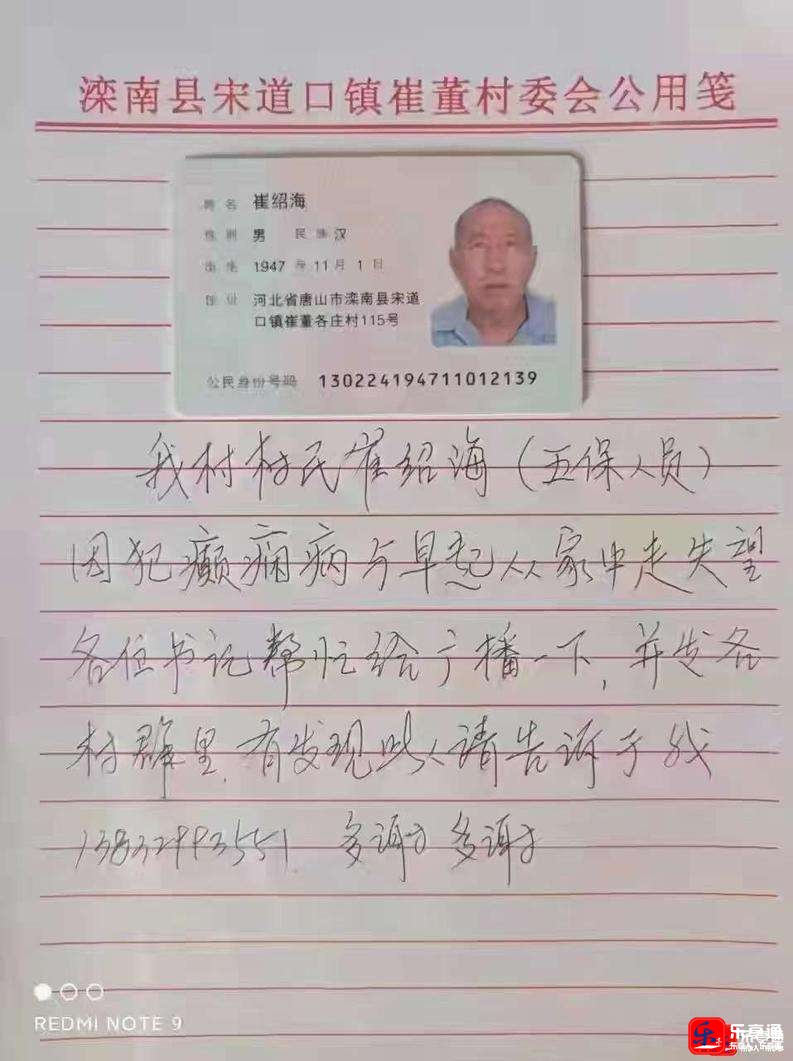 滦南县宋道口镇崔董村委会公用笺
姓名 崔绍海
性别 男 民族 汉
出生 1947 年 11 月 1 日
住址 河北省唐山市滦南县宋道
口镇崔董各庄村115号
公民身份号码 130224194711012139
我村村民崔绍海(五保人员)
因犯癫痫病与早起从家中走失望
各位书记帮忙给广播一下,并发各
村群里.有发现此人请告诉于我
13832993551. 多谢了 多谢了
REDMI NOTE 9
乐
乐享通